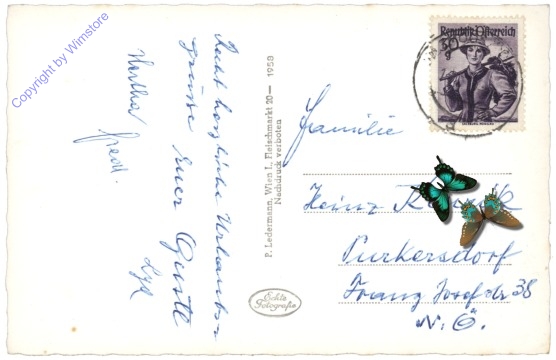 Copyright by Wimstore
Recht herzliche Urlaubs-
grüsse Euer Gustl
Hertha Fredl.
P. Ledermann, Wien I., Fleischmarkt 20 — 1958
Nachdruck verboten
Echte
Fotografie
Republik Österreich
Familie
Heinz
Purkersdorf
Franz Josef str 38
N. Ö.